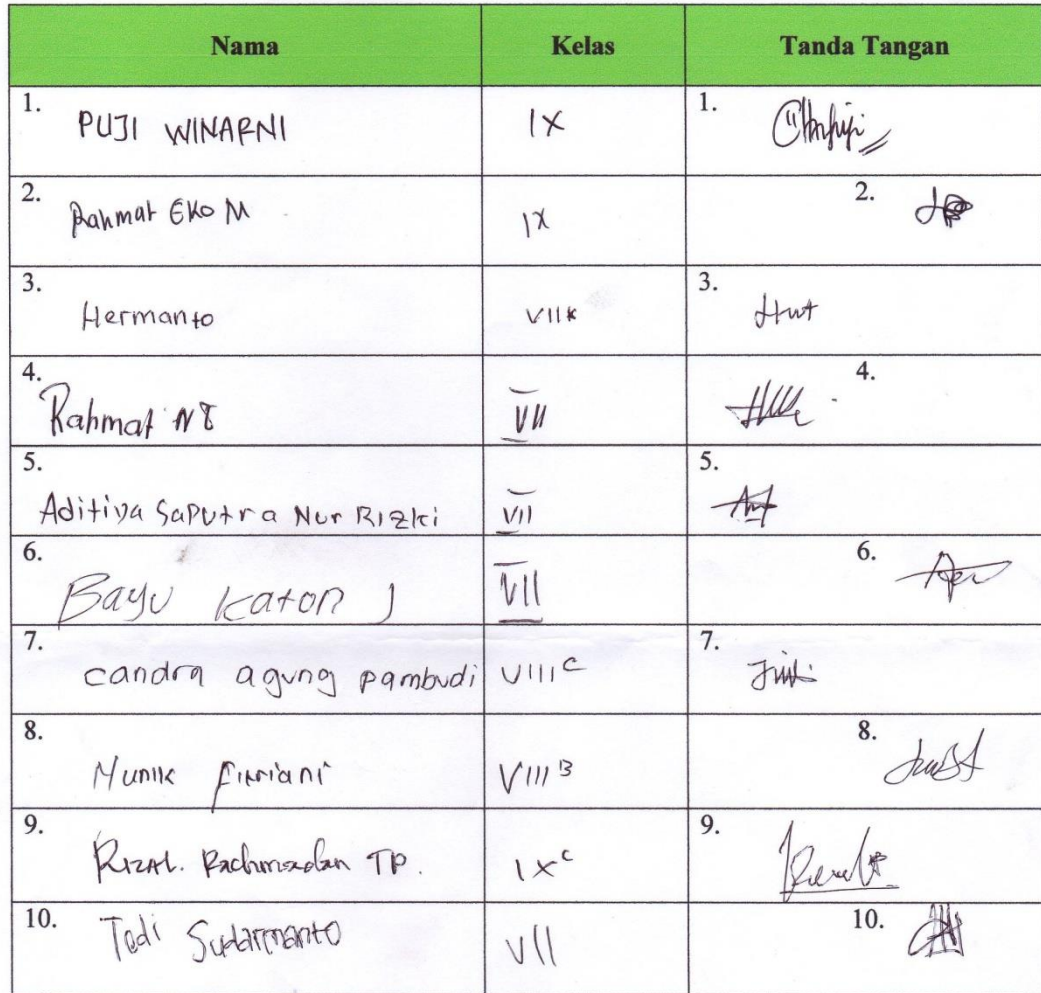 Nama Kelas Tanda Tangan
1. PUJI WINARNI IX 1.
2. Rahmat Eko M IX 2.
3. Hermanto VIIK 3.
4. Rahmat N VII 4.
5. Aditiya Saputra Nur Rizki VII 5.
6. Bayu Katon J VII 6.
7. candra agung pambudi VIII C 7.
8. Munik Fitriani VIII B 8.
9. Rizal. Rachmadan TP. IX C 9.
10. Tedi Sudarmanto VII 10.